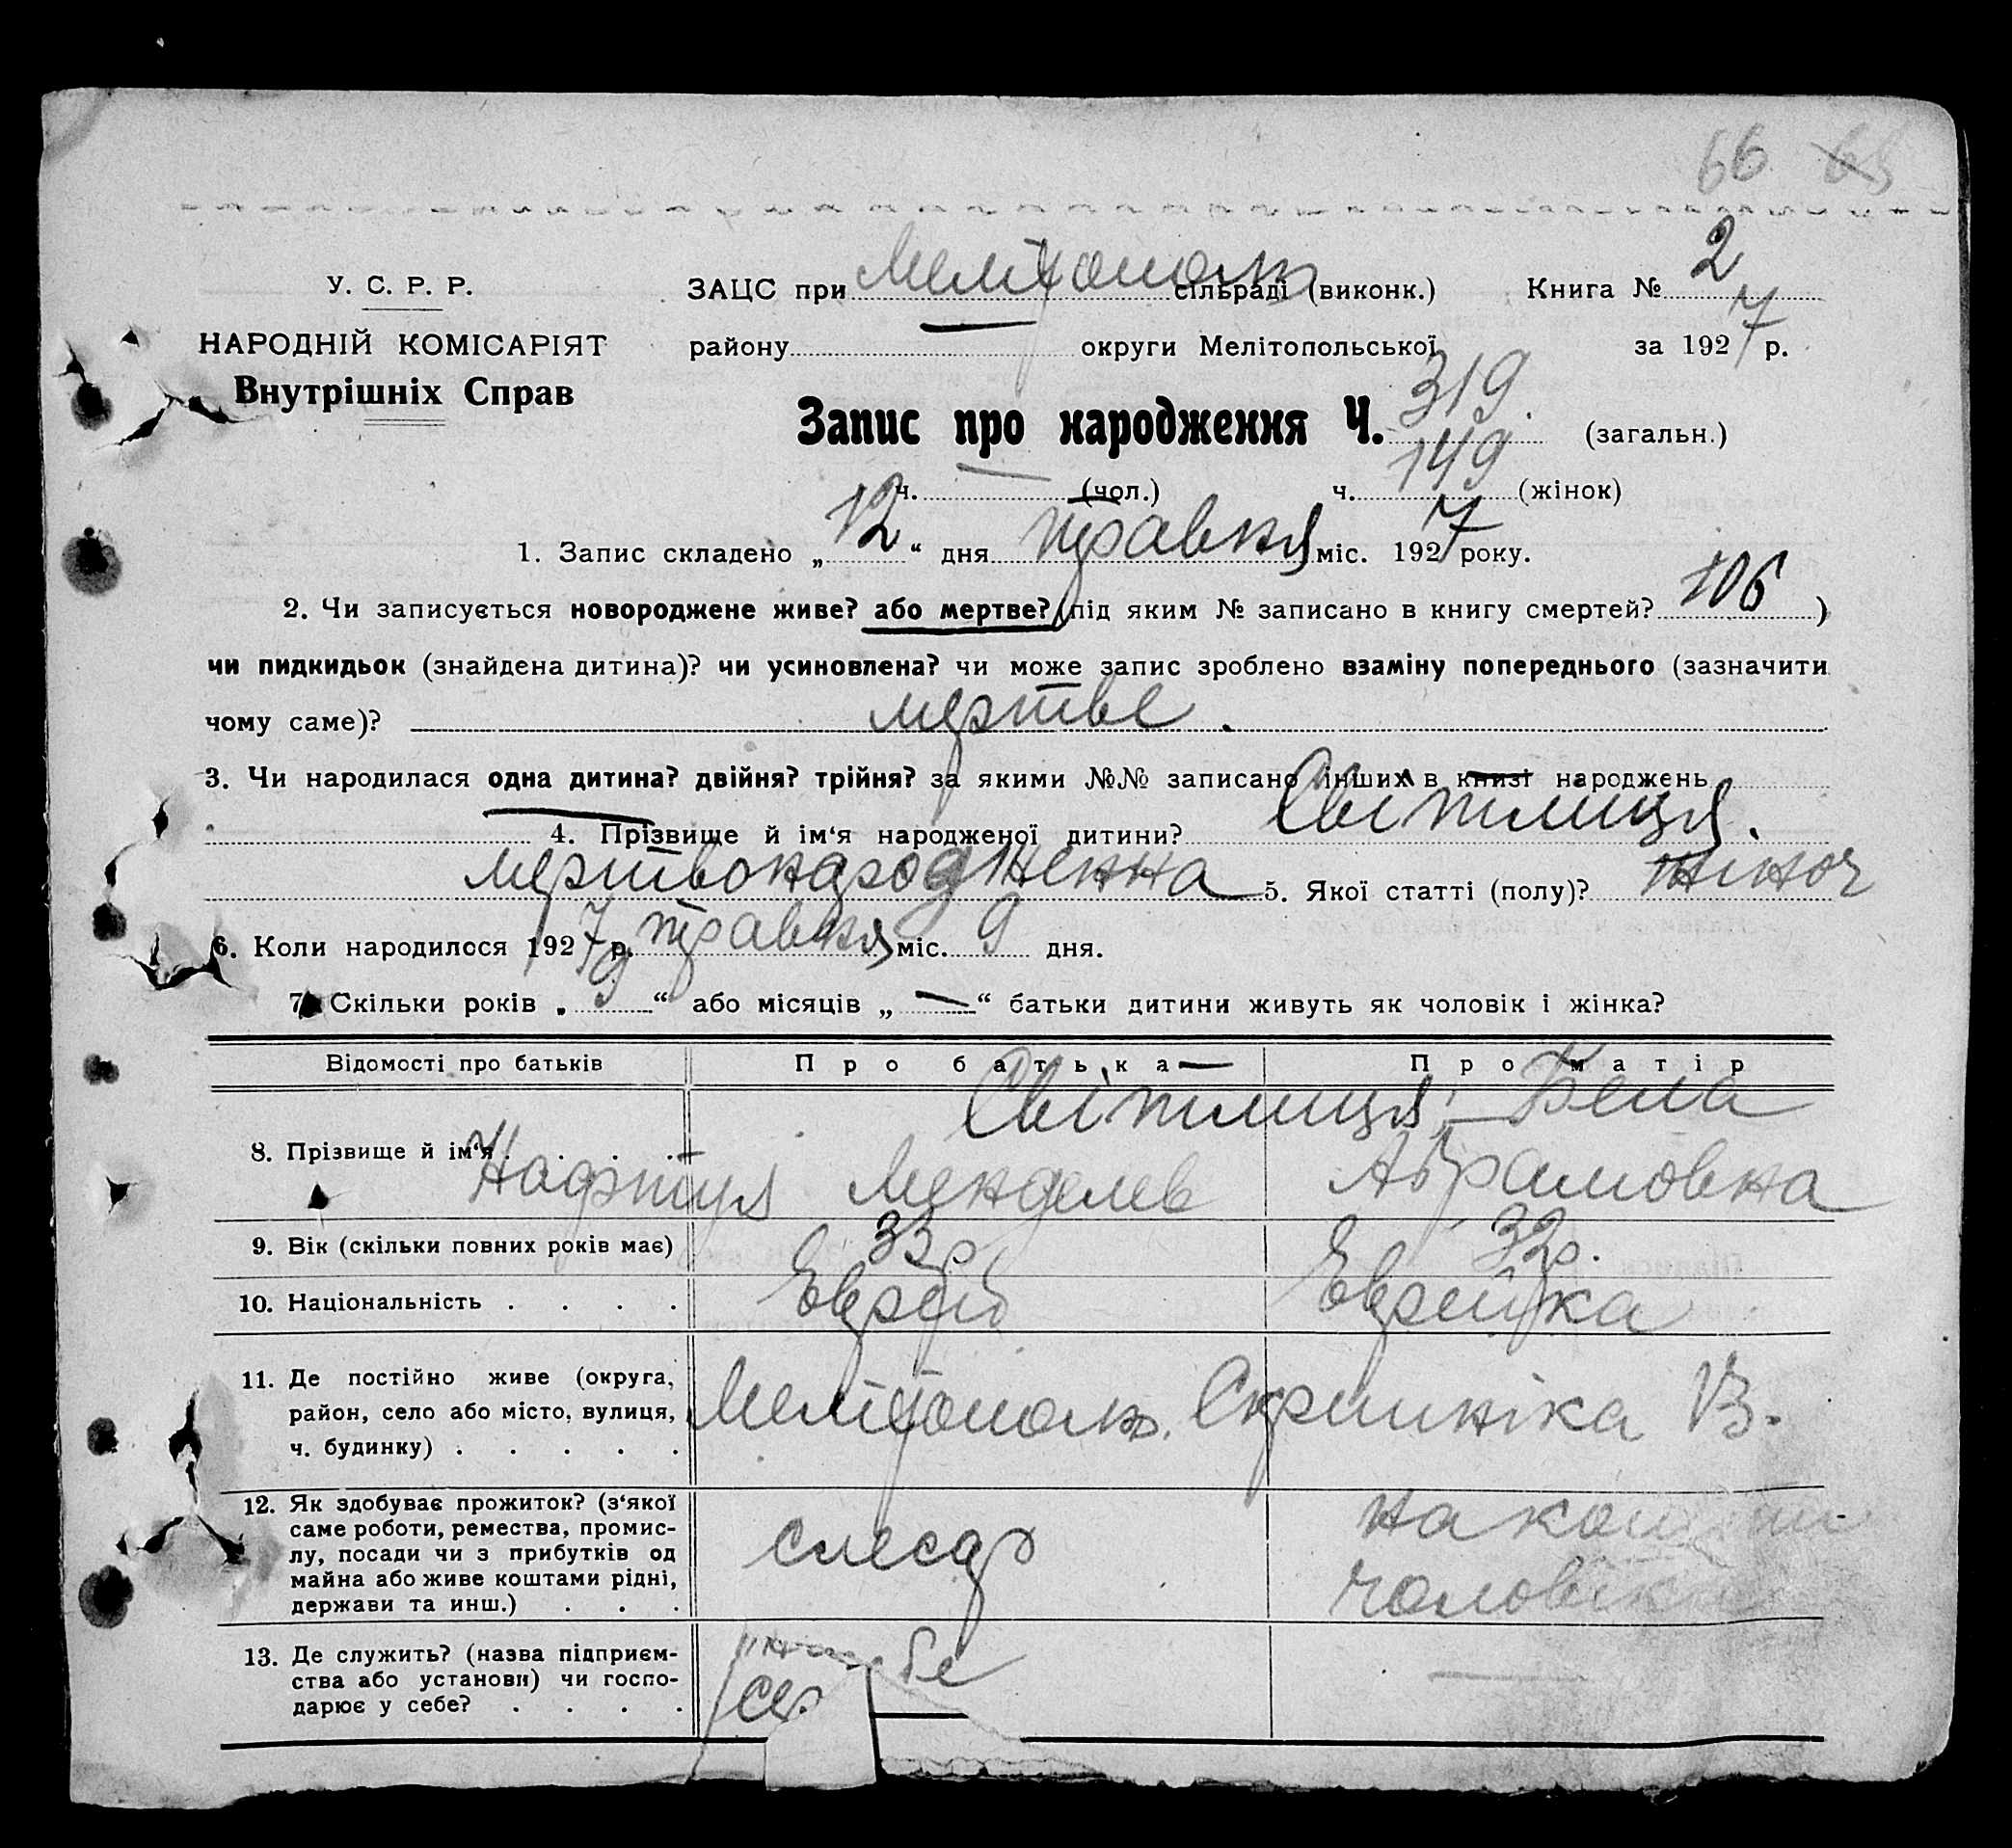 66 65
У. С. Р. Р.
НАРОДНІЙ КОМІСАРІЯТ
Внутрішніх Справ
ЗАЦС при Мелітополь сільраді (виконк.) Книга № 2
району округи Мелітопольської за 1927 р.
Запис про народження Ч. 319. (загальн.)
ч. — (чол.) ч. 149 (жінок)
1. Запис складено „12“ дня травня міс. 1927 року.
2. Чи записується новороджене живе? або мертве? (під яким № записано в книгу смертей? 106 )
чи пидкидьок (знайдена дитина)? чи усиновлена? чи може запис зроблено взаміну попереднього (зазначити
чому саме)? мертве.
3. Чи народилася одна дитина? двійня? трійня? за якими №№ записано інших в книзі народжень
4. Прізвище й ім‘я народженої дитини? Світлиця.
мертвонародженна 5. Якої статті (полу)? жіноч
6. Коли народилося 1927 р. травня міс. 9 дня.
7. Скільки років „9“ або місяців „—“ батьки дитини живуть як чоловік і жінка?
Відомості про батьків Про батька Про матір
8. Прізвище й ім‘я . . . . Світлиця: Бела
Нафтул Менделев Абрамовна
9. Вік (скільки повних років має) 33 р. 32 р.
10. Національність . . . . Еврей Еврейка
11. Де постійно живе (округа,
район, село або місто, вулиця,
ч. будинку) . . . . . Мелітополь. Скрипніка
12. Як здобуває прожиток? (з‘якої
саме роботи, ремества, промис-
лу, посади чи з прибутків од
майна або живе коштами рідні,
держави та инш.) . . . слесар на кошти
чоловіка
13. Де служить? (назва підприєм-
ства або установи) чи госпо-
дарює у себе? . . . . —